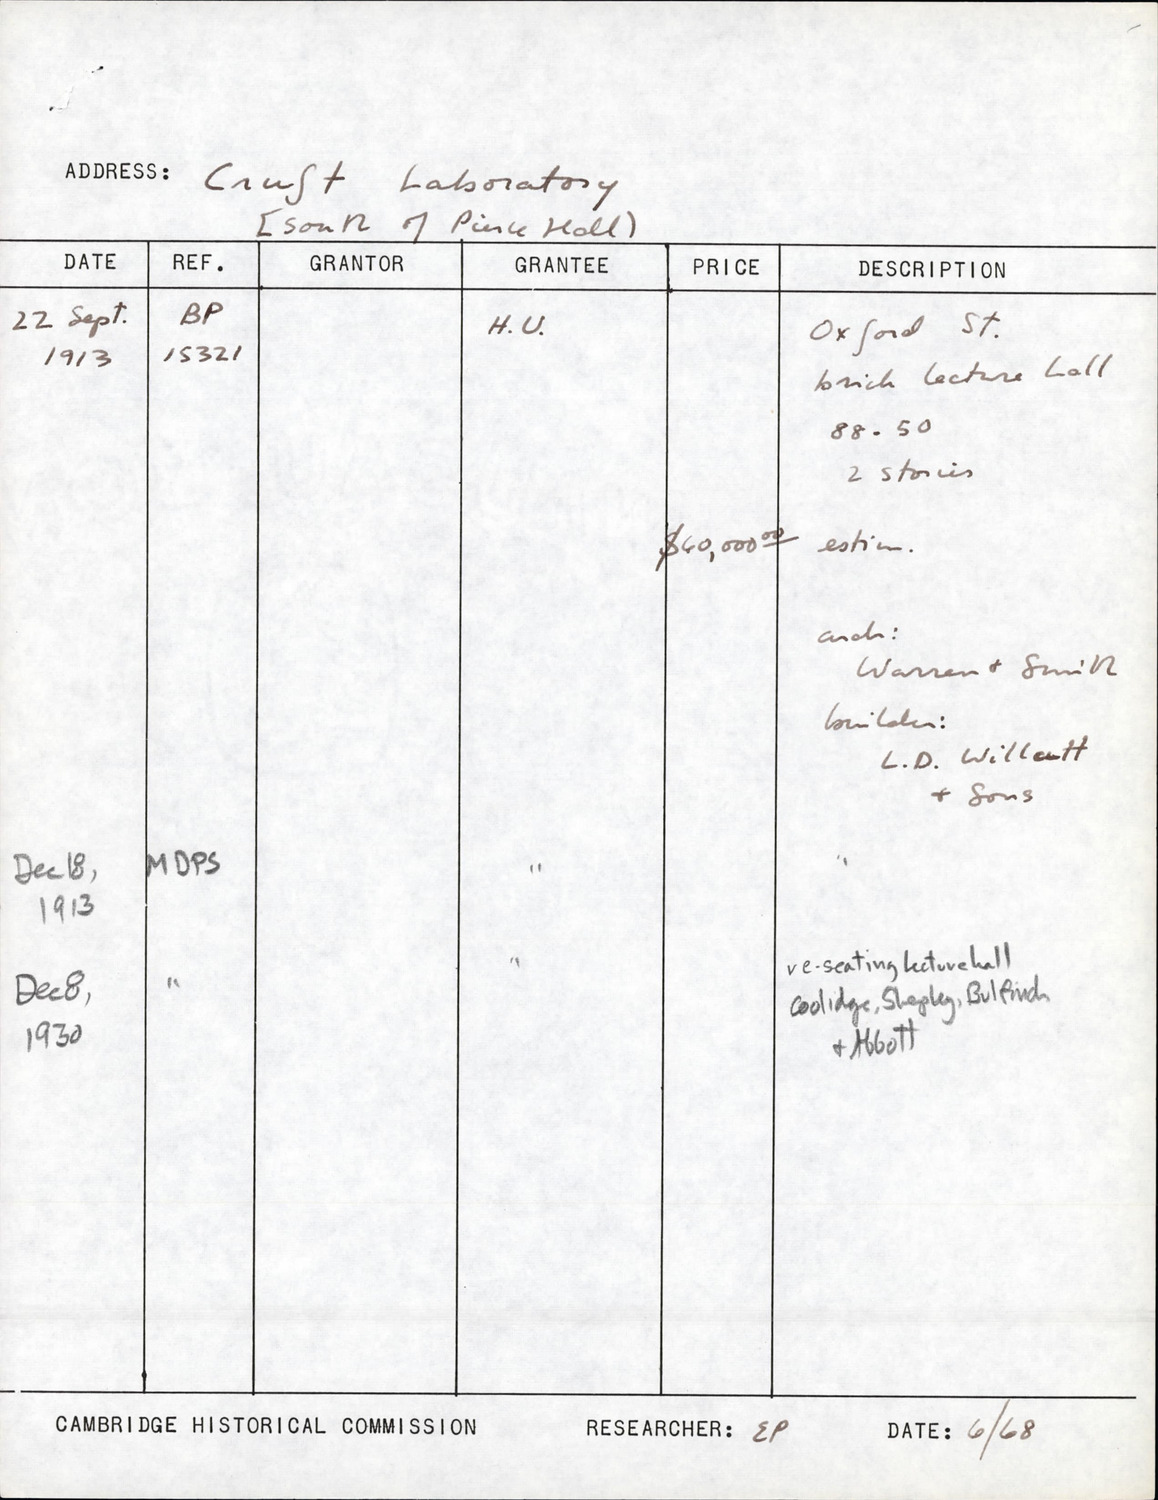 ADDRESS: Cruft Laboratory
[South of Pierce Hall)
DATE REF. GRANTOR GRANTEE PRICE DESCRIPTION
22 Sept. BP H.U. Oxford St.
1913 15321
brick lecture hall
88 - 50
2 stories
$60,000.00 estim.
arch:
Warren + Smith
builder:
L.D. Willcutt
+ Sons
Dec 18, MDPS " "
1913
Dec 8, " " re-seating lecture hall
1930 Coolidge, Shepley, Bulfinch
+ Abbott
CAMBRIDGE HISTORICAL COMMISSION RESEARCHER: EP DATE: 6/68